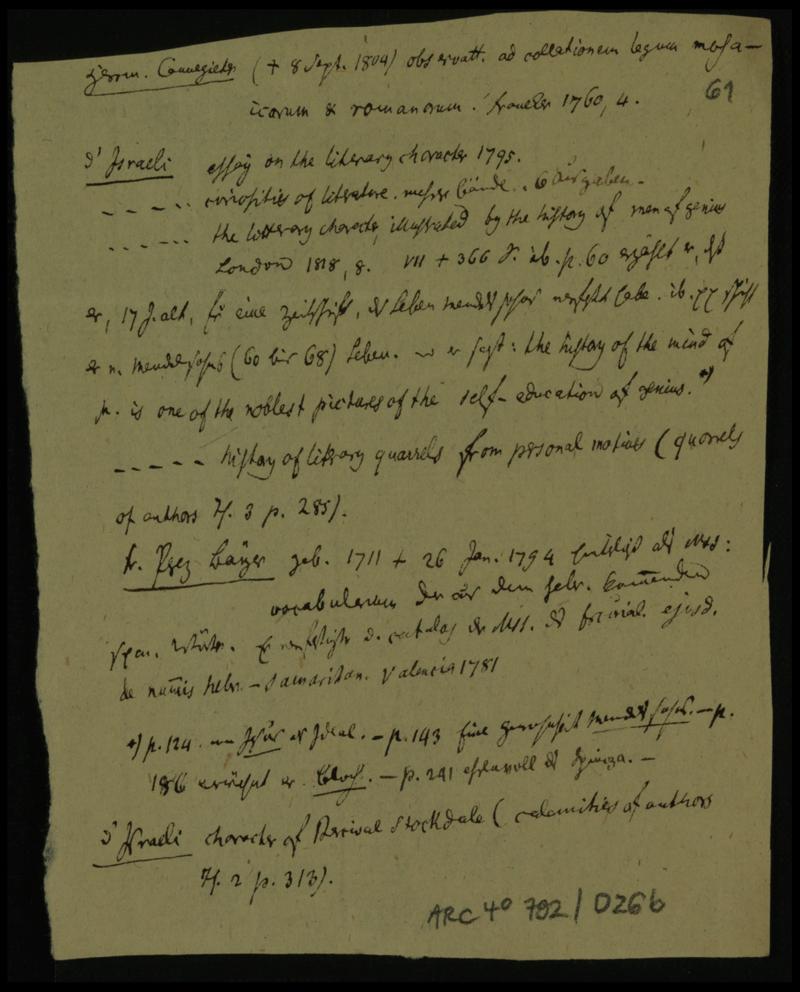 Herm. Cannegieter († 8 Sept. 1804) observatt. ad collationem legum mosa-
icarum & romanorum. Franeker 1760, 4.
61
D'Israeli essay on the literary character 1795.
- - - - - curiosities of literature. mehrere Bände. 6 Ausgaben.
- - - - - - the literary character, illustrated by the history of men of genius
London 1818, 8. VII + 366 S. ib. p. 60 erzählt er, daß
er, 17 J. alt, für eine Zeitschrift, das Leben Mendelssohns verfaßt habe. ib.
er v. Mendelssohns (60 bis 68) Leben. er sagt: the history of the mind of
M. is one of the noblest pictures of the self-education of genius. *)
- - - - - history of literary quarrels from personal motives (quarrels
of authors Th. 3 p. 285).
Fr. Perez Bayer geb. 1711 † 26 Jan. 1794 als Mss:
vocabularium der aus dem hebr. kommenden
span. Wörter. Er verfertigte d. catalog der Mss. des Escurial. ejusd.
de numis hebr.-samaritan. Valencia 1781
*) p. 124. Ideal. - p. 143 Eine Gewohnheit Mendelssohns. - p.
186 erwähnt er Bloch. - p. 241 ehrenvoll des Spinoza. -
D'Israeli character of Percival Stockdale (calamities of authors
Th. 2 p. 313).
ARC 4° 792 / D26b